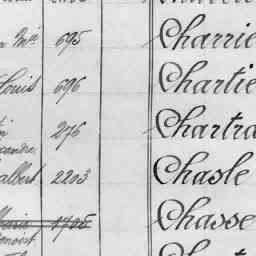 695 Charrie
Louis 696 Chartie
276 Chartra
albert 2203 Chasle
Marie 1705 Chasse